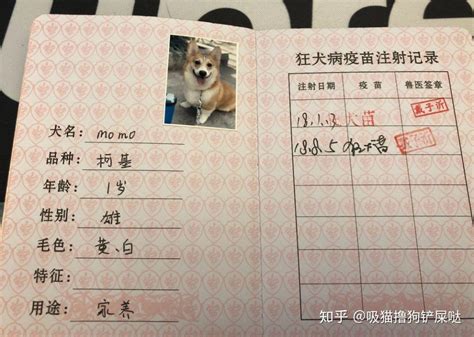 犬名: momo
品种: 柯基
年龄: 1岁
性别: 雄
毛色: 黄、白
特征:
用途: 家养
狂犬病疫苗注射记录
注射日期 疫苗 兽医签章
18.1.13 犬苗
18.8.5
知乎 @吸猫撸狗铲屎哒